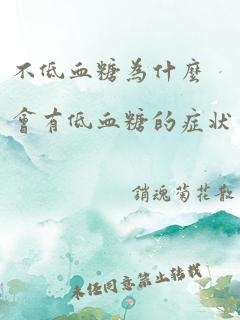 不低血糖為什麼
會有低血糖的症狀
銷魂菊花散
未經同意禁止轉載